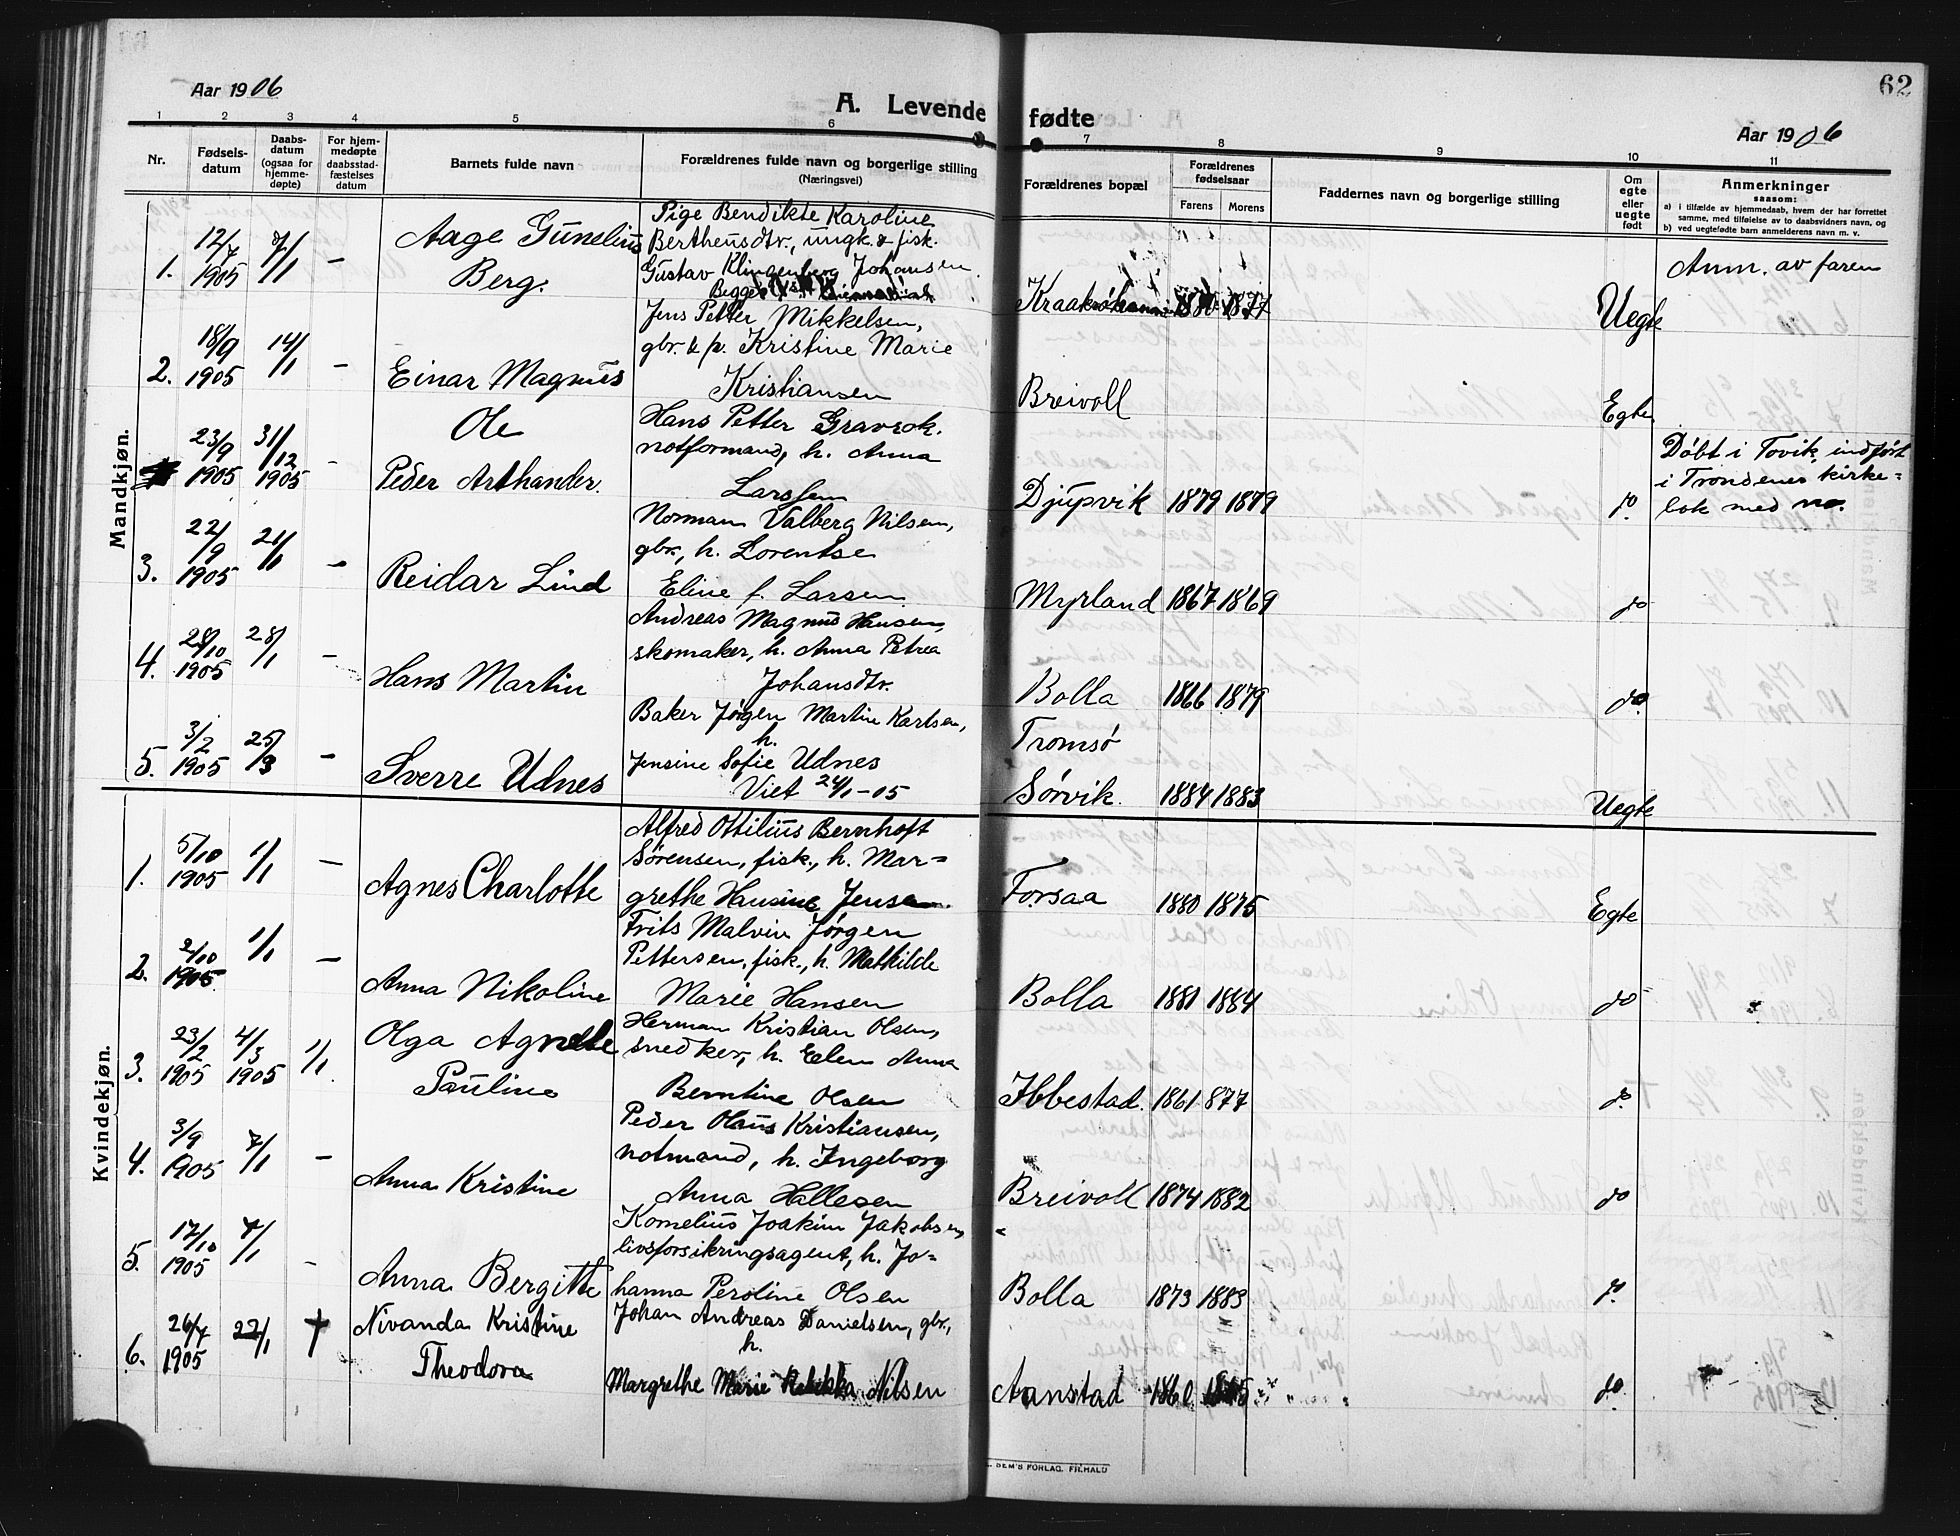 Aar 1906
A. Levende fødte
62
Aar 1906
1 2 3 4 5 6 7 8 9 10 11
Nr.
Fødsels-
datum
Daabs-
datum
(ogsaa for
hjemme-
døpte)
For hjem-
medøpte
daabsstad-
fæstelses
datum
Barnets fulde navn
Forældrenes fulde navn og borgerlige stilling
(Næringsvei)
Forældrenes bopæl
Forældrenes
fødselsaar
Farens Morens
Faddernes navn og borgerlige stilling
Om
egte
eller
uegte
født
Anmerkninger
saasom:
a) i tilfælde av hjemmedaab, hvem der har forrettet
samme, med tilføielse av to daabsvidners navn, og
b) ved uegtefødte barn anmelderens navn m. v.
Mandkjøn.
1. 12/7 1905 7/1 -
Aage Gunelius
Berg.
Pige Bendikte Karoline
Berthensdtr., ungk. & fisk.
Gustav Klingenberg Johansen
Begge
1880 1877
Uegte
Anm. av faren
2. 18/9 1905 14/1 -
Einar Magnus
Jens Petter Mikkelsen,
gbr. & p. Kristine Marie
Kristiansen
Breivoll
Egte
23/9 1905 31/12 1905 -
Ole
Peder Arthander.
Hans Petter Gravrok.
notformand, h. Anna
Larssen
Djupvik 1879 1879
do.
Døbt i Tovik, indført
i Trondenes kirke-
bok med no.
3. 22/9 1905 21/1 -
Reidar Lind
Norman Valberg Nilsen,
gbr., h. Lorentse
Eline f. Larsen
Myrland 1867 1869
do
4. 28/10 1905 28/1 -
Hans Martin
Andreas Magnus Hansen,
skomaker, h. Anna Petrea
Johansdtr.
Bolla 1866 1879
do.
5. 3/2 1905 25/3 -
Sverre Udnes
Baker Jørgen Martin Karlsen,
h.
Jensine Sofie Udnes
Viet 24/1-05
Tromsø
Sørvik. 1884 1883
Uegte
Kvindekjøn.
1. 5/10 1905 1/1 -
Agnes Charlotte
Alfred Ottilius Bernhoft
Sørensen, fisk., h. Mar-
grethe Hansine Jensen.
Forsaa 1880 1875
Egte
2. 2/10 1905 1/1 -
Anna Nikoline
Frits Malvin Jørgen
Pettersen, fisk., h. Mathilde
Marie Hansen
Bolla 1881 1884
do
3. 23/2 1905 4/3 1905 1/1
Olga Agnete
Pauline
Herman Kristian Olsen,
snedker, h. Elen Anna
Berntine Olsen
Ibbestad. 1861 877
do.
4. 3/9 1905 7/1 -
Anna Kristine
Peder Olaus Kristiansen,
notmand, h. Ingeborg
Anna Hallesen
Breivoll 1874 1882
do
5. 17/10 1905 7/1 -
Anna Bergitte
Kornelius Joakim Jakobsen,
livsforsikringsagent, h. Jo-
hanna Peroline Olsen
Bolla 1873 1883
do.
6. 26/7 1905 22/1 †
Nivanda Kristine
Theodora
Johan Andreas Danielsen, gbr.,
h.
Margrethe Marie Rebikka Nilsen
Aanstad 1860
do.
SEM'S FORLAG. FR.HALD